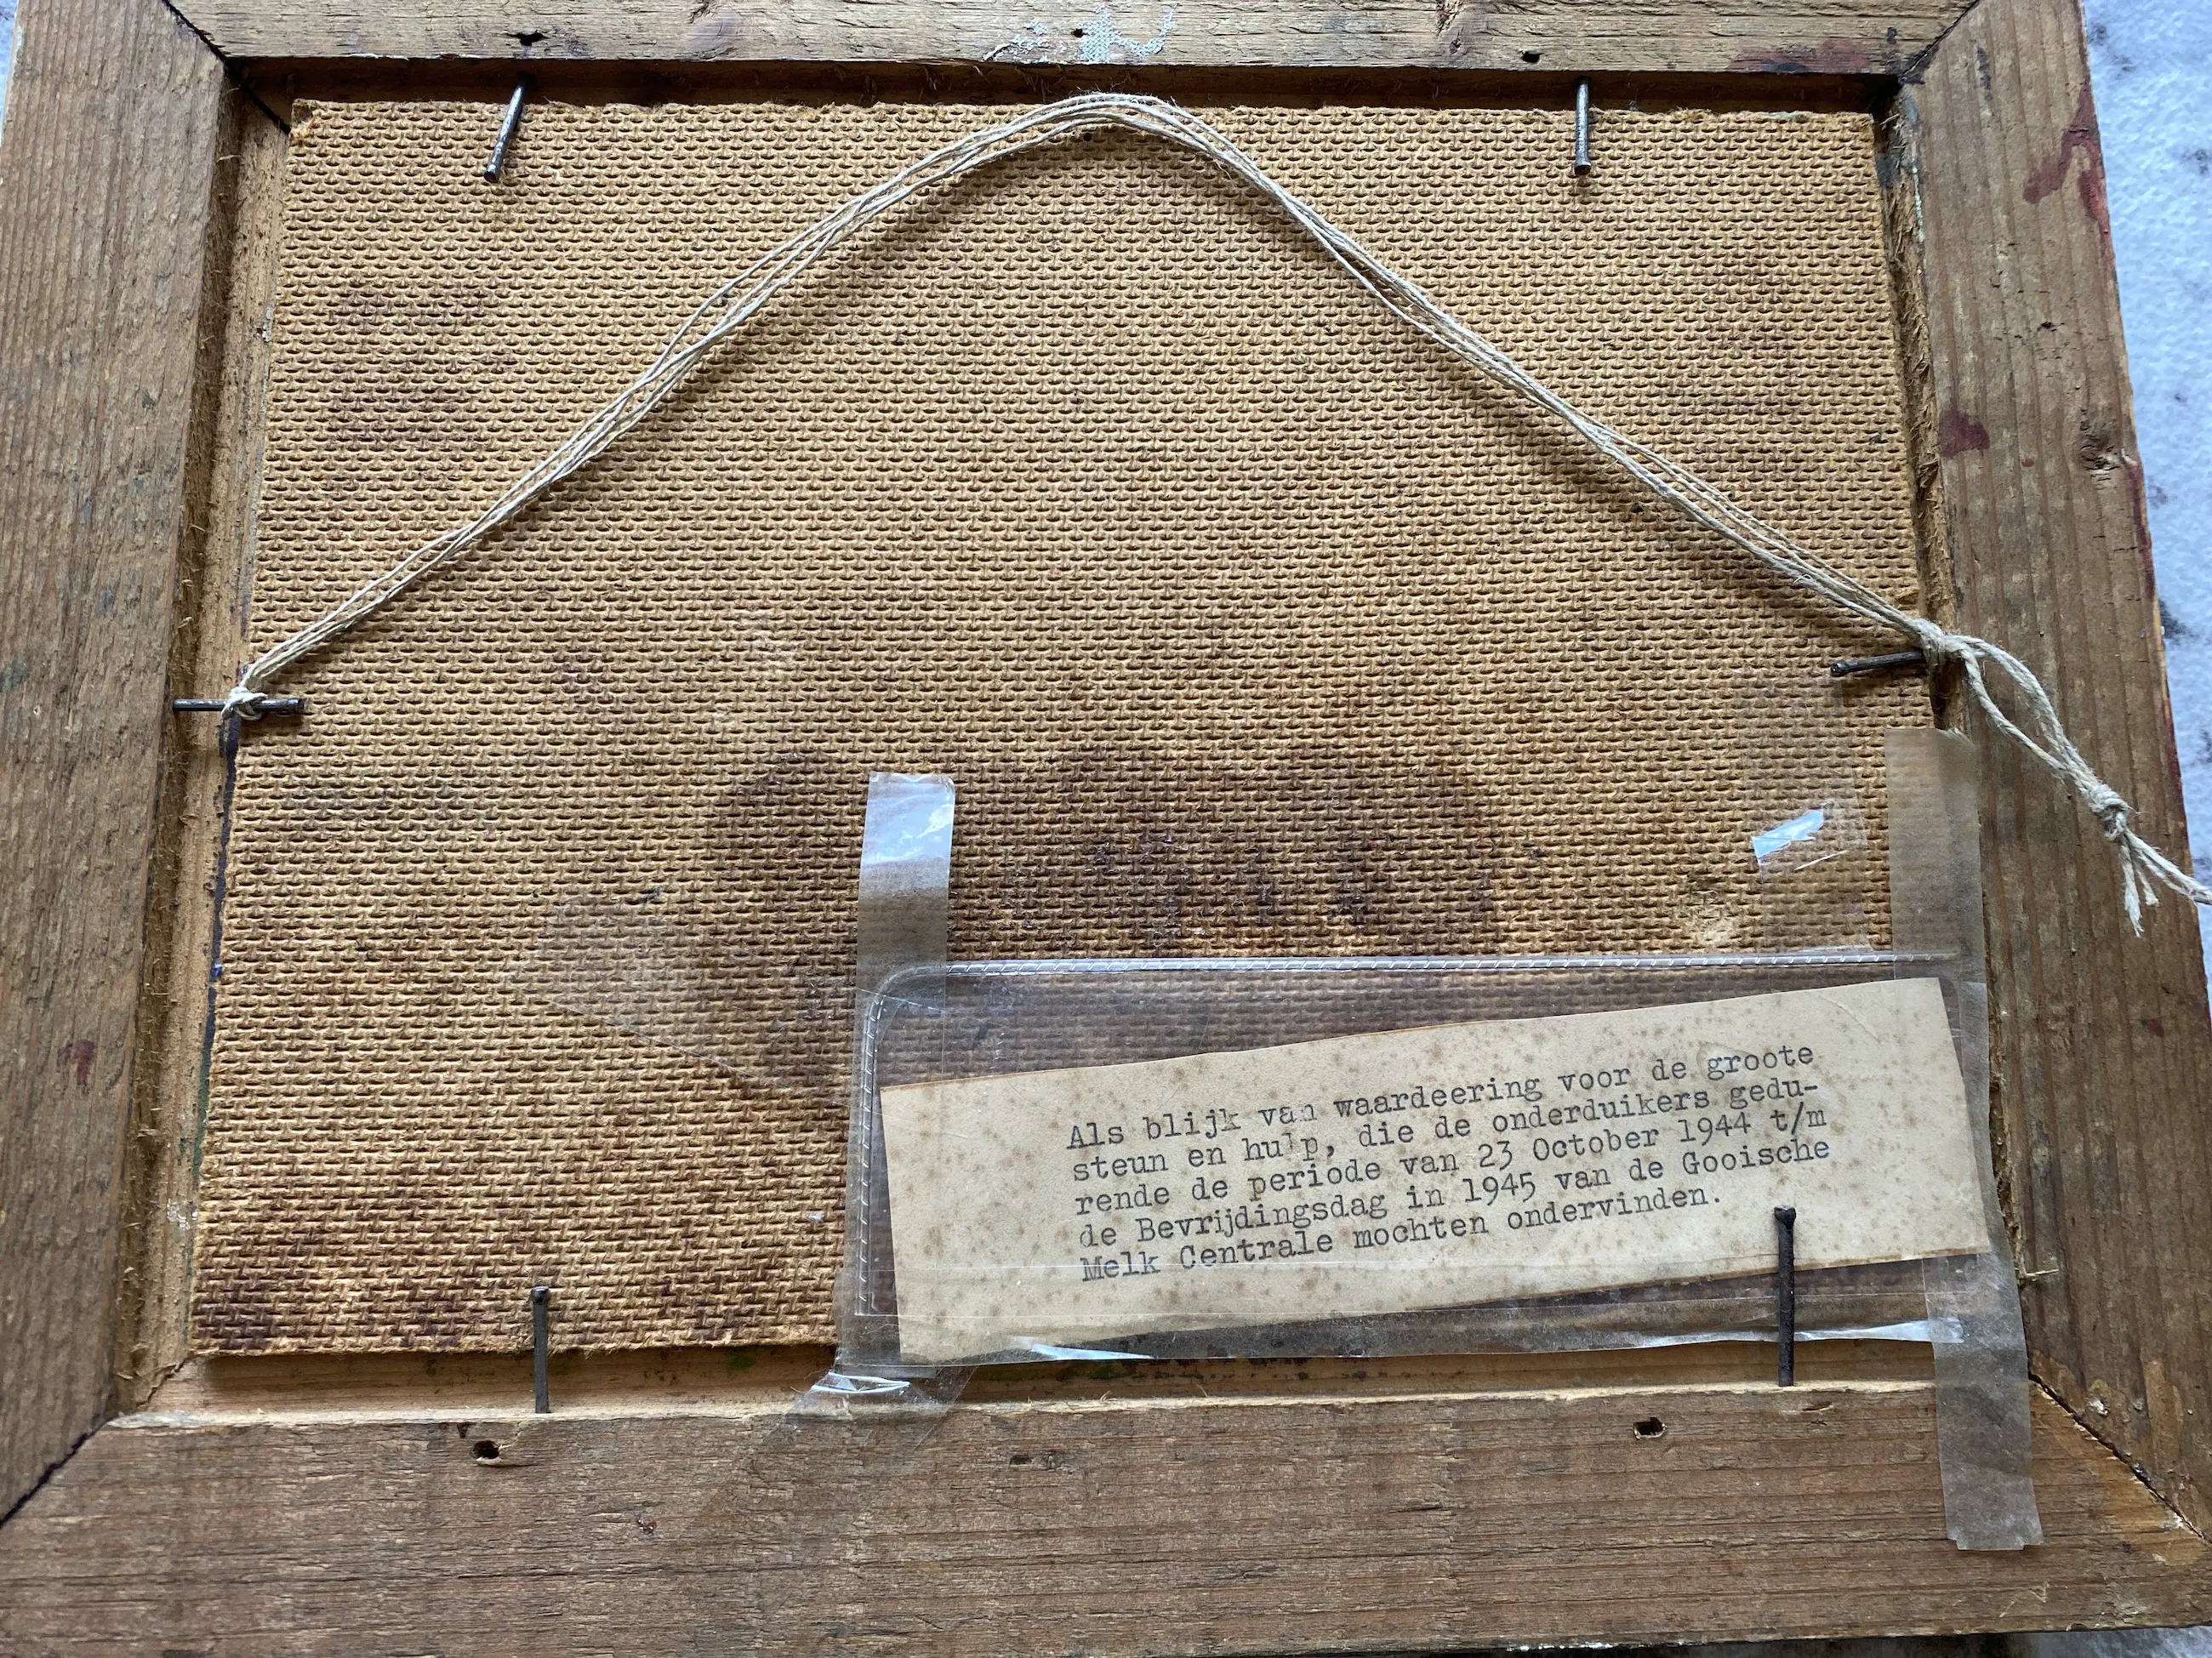 Als blijk van waardeering voor de groote
steun en hulp, die de onderduikers gedu-
rende de periode van 23 October 1944 t/m
de Bevrijdingsdag in 1945 van de Gooische
Melk Centrale mochten ondervinden.